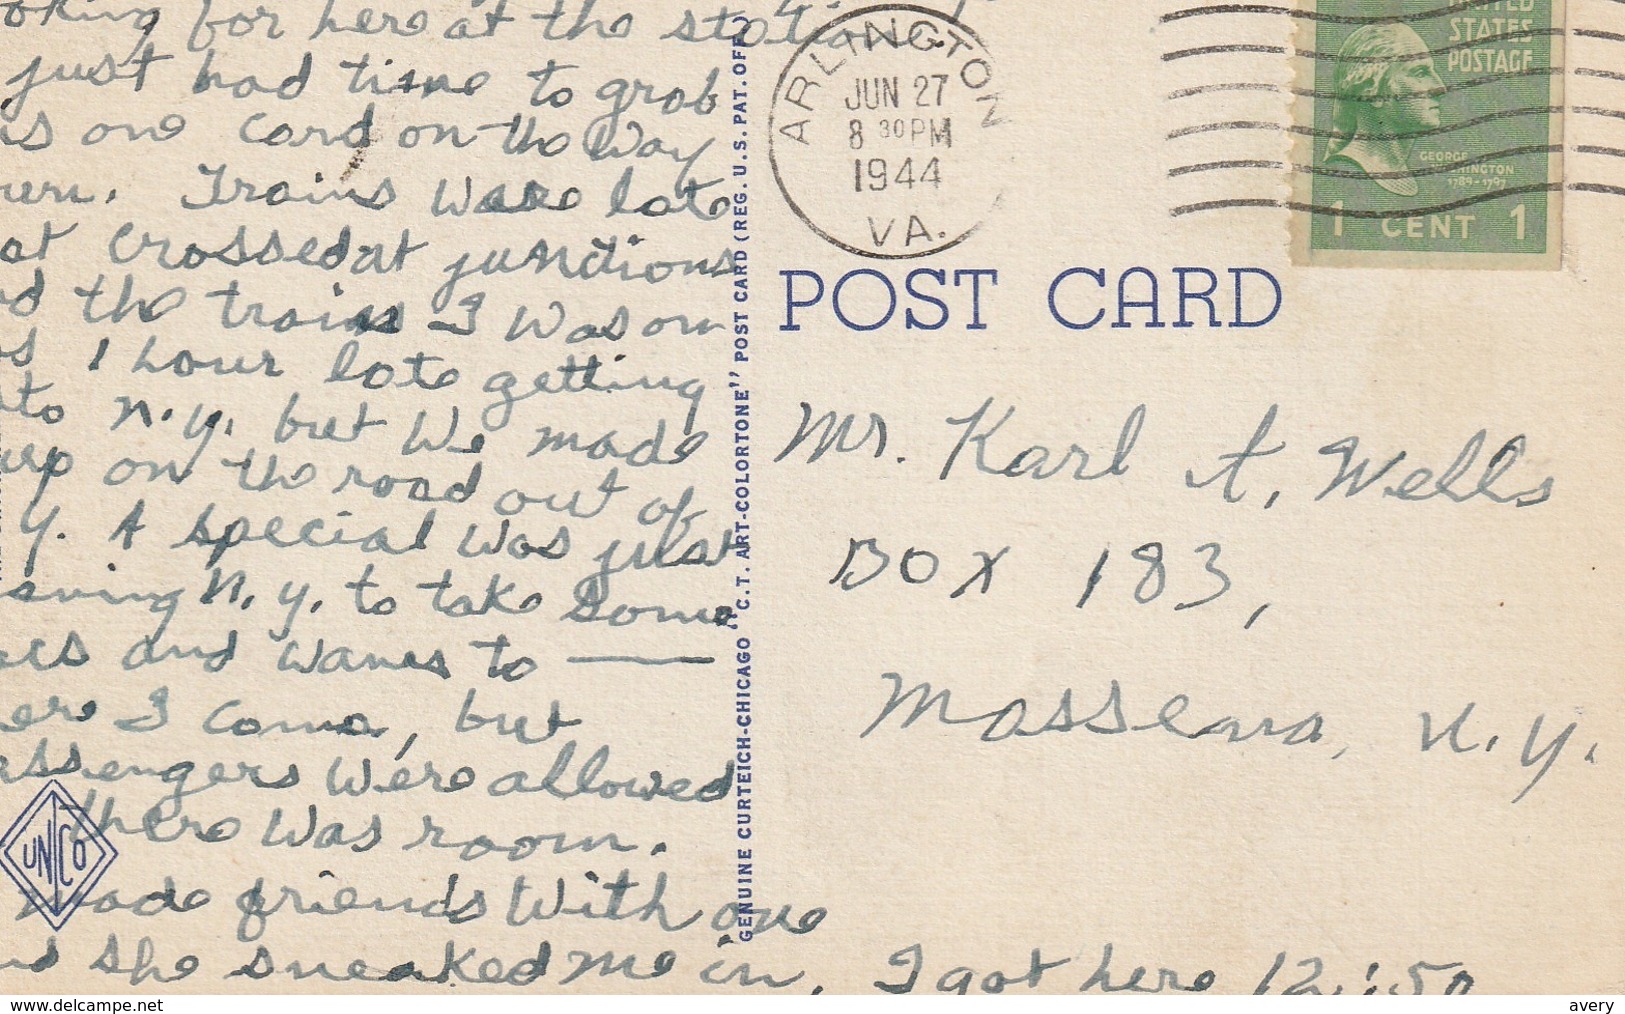 oking for here at the station.
just had time to grab
is one card on the way
Trains were late
at crossed at junctions
nd the train I was on
as 1 hour late getting
nto N.Y. but we made
up on the road out of
Y. A special was just
N.Y. to take some
acs and waves to ——
ere I come, but
assengers were allowed
there was room.
made friends with one
she sneaked me in. I got here 12:50
GENUINE CURTEICH-CHICAGO "C.T. ART-COLORTONE" POST CARD (REG. U.S. PAT. OFF.)
UNCO
ARLINGTON
JUN 27
8 30 PM
1944
VA.
UNITED
STATES
POSTAGE
GEORGE
WASHINGTON
1789-1797
1 CENT 1
POST CARD
Mr. Karl A. Wells
Box 183,
Massena, N.Y.
www.delcampe.net
avery